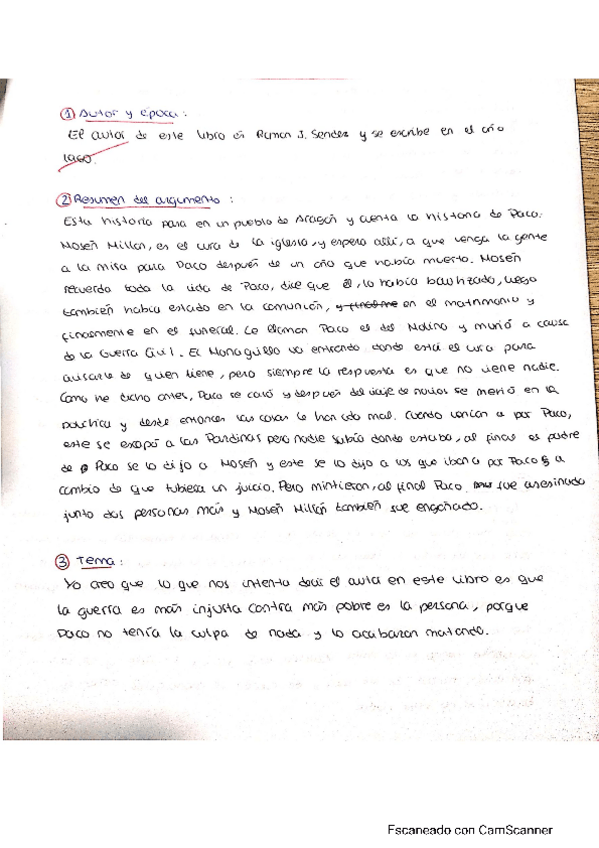 ① Autor y época:
El autor de este libro es Ramon J. Sender y se escribe en el año
1960.
② Resumen del argumento :
Esta historia pasa en un pueblo de Aragón y cuenta la historia de Paco.
Mosén Millán, es el cura de la iglesia y espera allí, a que venga la gente
a la misa para Paco después de un año que había muerto. Mosén
recuerda toda la vida de Paco, dice que él, lo había bautizado, luego
tambien había estado en la comunión, en el matrimonio y
finalmente en el funeral. Le llaman Paco el del Molino y murió a causa
de la Guerra Civil. El Monaguillo va entrando donde está el cura para
avisarle de quien viene, pero siempre la respuesta es que no viene nadie.
Como he dicho antes, Paco se casó y después del viaje de novios se metió en la
política y desde entonces las cosas le han ido mal. Cuando venían a por Paco,
este se escapó a las Pardinas pero nadie sabía donde estaba, al final el padre
de Paco se lo dijo a Mosén y este se lo dijo a los que iban a por Paco a
cambio de que tubiera un juicio. Pero mintieron, al final Paco fue asesinado
junto dos personas más y Mosén Millán también fue engañado.
③ Tema :
Yo creo que lo que nos intenta decir el autor en este libro es que
la guerra es más injusta contra más pobre es la persona, porque
Paco no tenía la culpa de nada y lo acabaron matando.
Escaneado con CamScanner